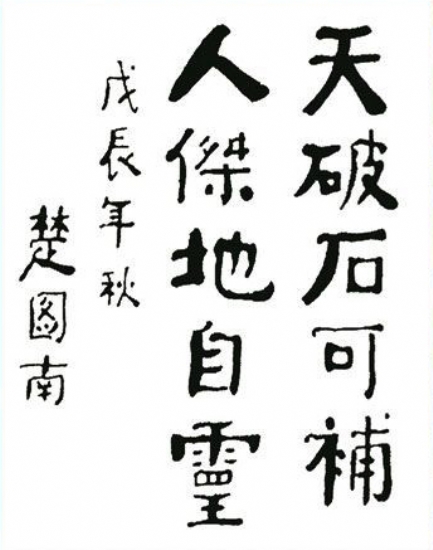 天破石可補
人傑地自靈
戊辰年秋
楚圖南